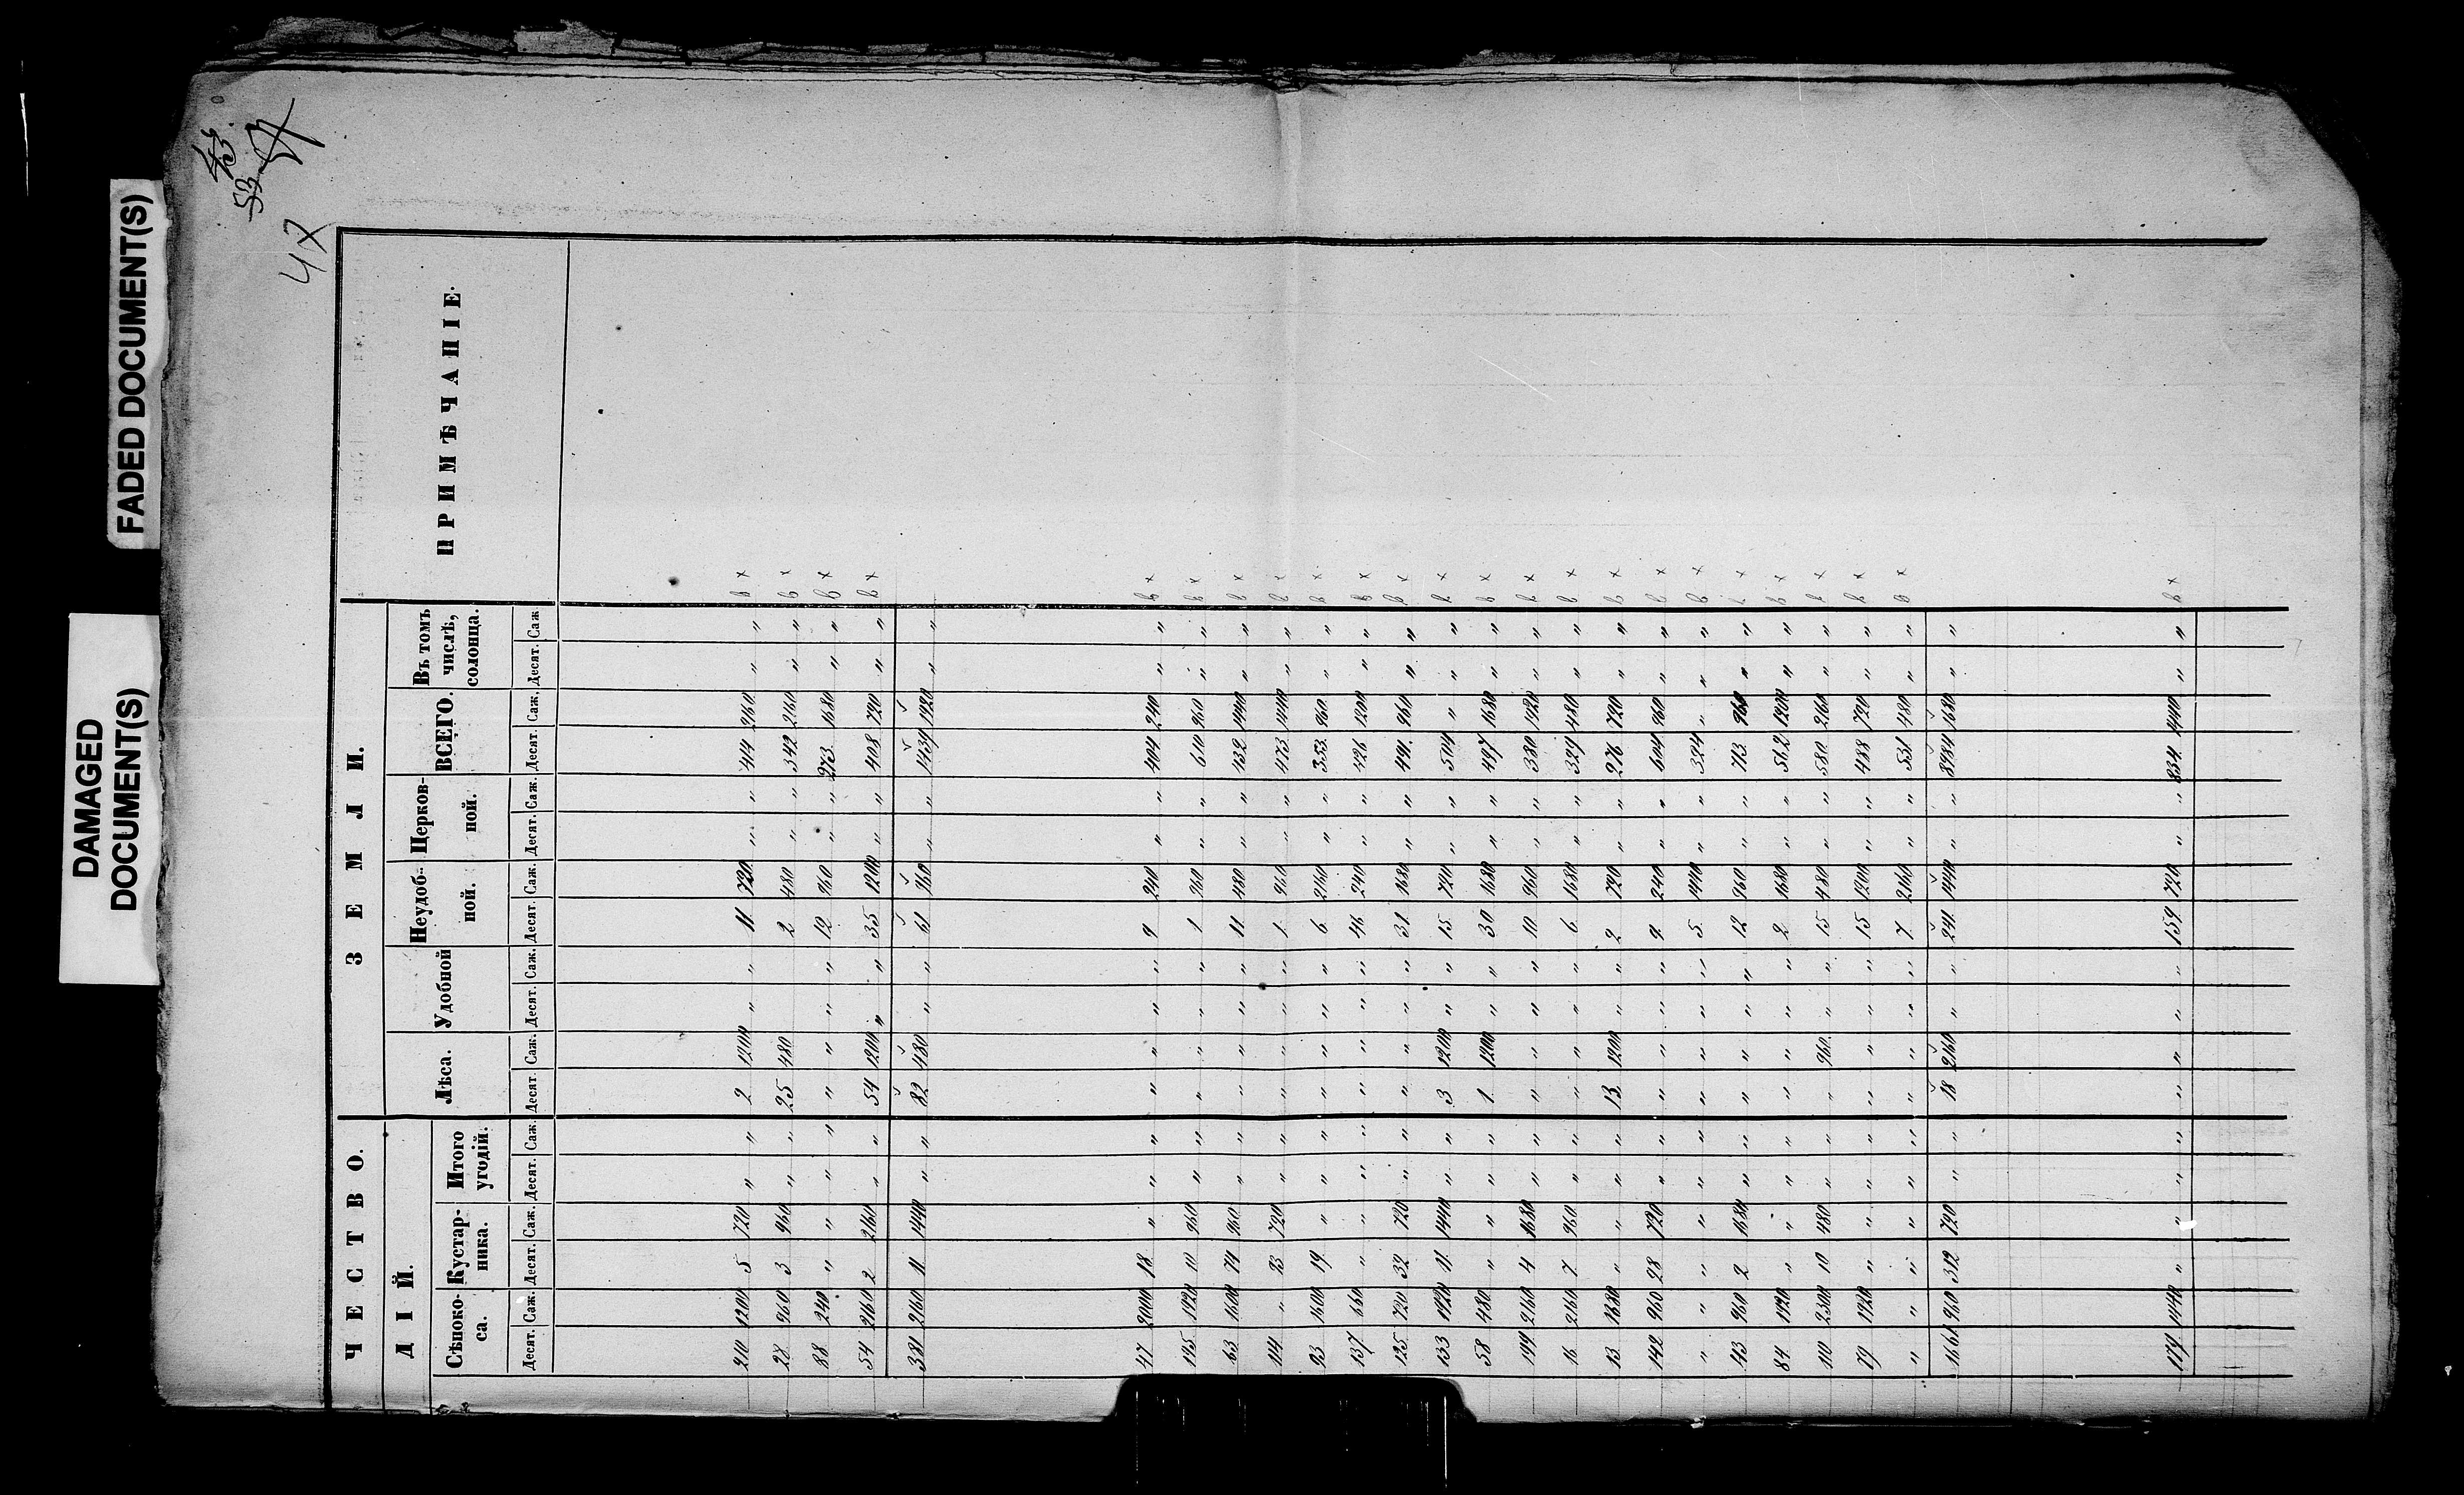 DAMAGED
DOCUMENT(S)
FADED DOCUMENT(S)
47
ЧЕСТВО. ЗЕМЛИ. ПРИМѢЧАНІЕ.
ДІЙ.
Сѣноко-са. Кустар-ника. Итого угодій. Лѣса. Удобной Неудоб-ной. Церков-ной. ВСЕГО. Въ томъ числѣ, солонца.
Десят. Саж. Десят. Саж. Десят. Саж. Десят. Саж. Десят. Саж. Десят. Саж. Десят. Саж. Десят. Саж. Десят. Саж
210 1200 5 720 " " 2 1200 " " 11 720 " " 414 2160 " " в ×
28 960 3 960 " " 25 480 2 480 " " 342 2160 " " в ×
88 240 " " " " " " " " 12 960 " " 273 1680 " " в ×
54 2160 2 2160 " " 54 1200 " " 35 1200 " " 408 720 " " в ×
381 2160 11 1440 " " 82 480 " " 61 960 " " 1439 1920 " "
47 2000 18 " " " " " " " 9 240 " " 404 240 " " в ×
145 1920 10 960 " " " " " " 1 960 " " 610 960 " " в ×
63 1600 74 960 " " " " " " 11 480 " " 432 1440 " " в ×
114 " 23 720 " " " " " " 1 960 " " 473 1440 " " в ×
93 1600 19 " " " " " " " 6 2160 " " 353 960 " " в ×
137 660 " " " " " " " " 46 240 " " 426 1200 " " в ×
125 720 32 720 " " " " " " 31 1680 " " 491 960 " " в ×
133 1920 11 1440 " " 3 1200 " " 15 720 " " 504 " " " в ×
58 480 " " " " 1 1200 " " 30 1680 " " 497 1680 " " в ×
199 2160 4 1680 " " " " " " 10 960 " " 380 1920 " " в ×
16 2160 7 960 " " " " " " 6 1680 " " 329 480 " " в ×
13 1680 " " " " 13 1200 " " 2 720 " " 276 720 " " в ×
142 960 28 720 " " " " " " 9 240 " " 604 960 " " в ×
" " " " " " " " " " 5 1440 " " 324 " " " в ×
43 960 2 1680 " " " " " " 12 960 " " 713 960 " " в ×
84 1920 " " " " " " " " 2 1680 " " 562 1200 " " в ×
110 2300 10 480 " " " 960 " " 15 480 " " 580 2160 " " в ×
79 1920 " " " " " " " " 15 1200 " " 488 720 " " в ×
" " " " " " " " " " 7 2160 " " 531 480 " " в ×
1661 960 312 720 " " 18 2160 " " 241 1440 " " 8984 1680 " "
179 1440 " " " " " " " " 159 720 " " 834 1440 " " в ×